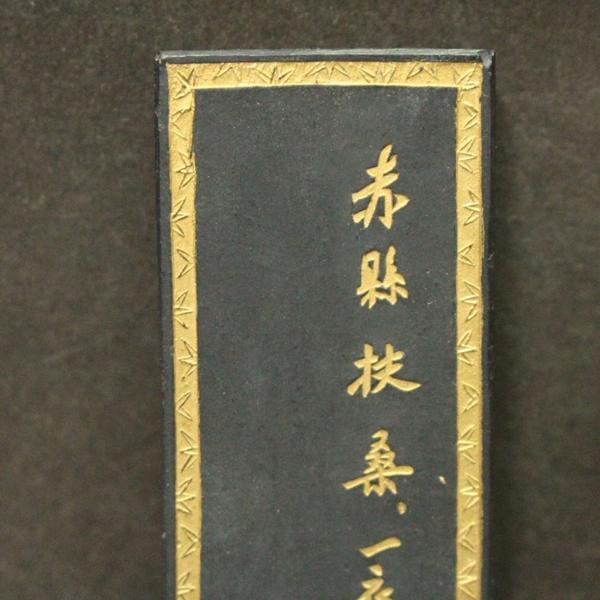 赤縣扶桑一